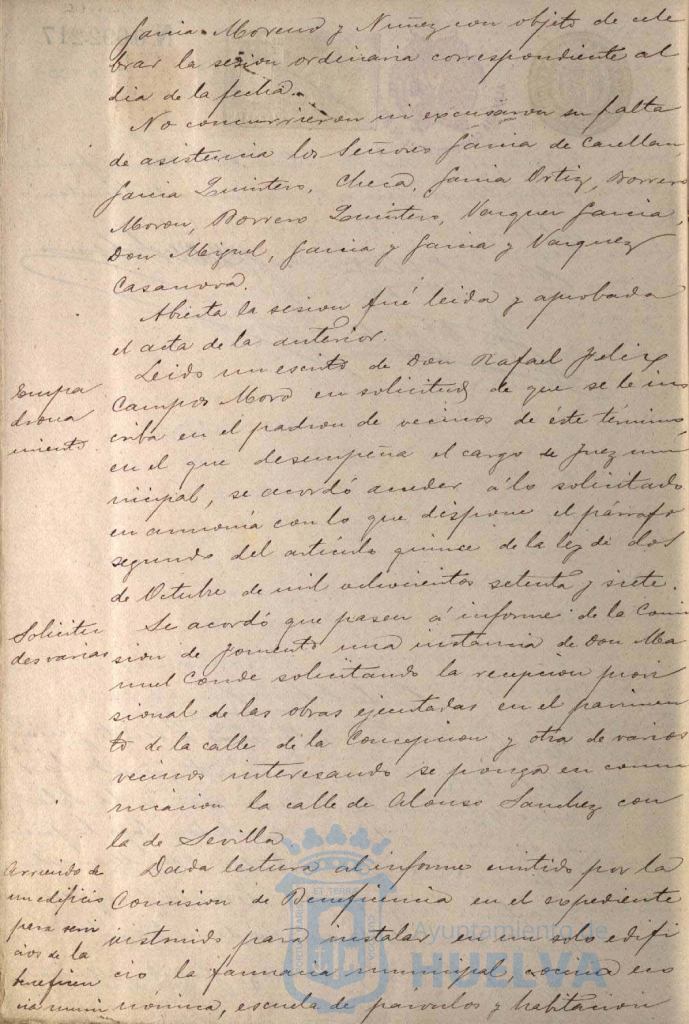 Garcia Moreno y Nuñez con objeto de cele
brar la sesion ordinaria correspondiente al
dia de la fecha.
No concurrieron ni excusaron su falta
de asistencia los Señores Garcia de Castellan,
Garcia Quintero, Checa, Garcia Ortiz, Borrero
Moron, Borrero Quintero, Vazquez Garcia,
Don Miguel, Garcia y Garcia y Vazquez
Casanova.
Abierta la sesion fué leida y aprobada
el acta de la anterior.
Empa
drona
miento
Leido un escrito de Don Rafael Felix
Campos Moro en solicitud de que se le ins
criba en el padron de vecinos de éste término
en el que desempeña el cargo de Juez mu
nicipal, se acordó acceder á lo solicitado
en armonía con lo que dispone el párrafo
segundo del artículo quince de la ley de dos
de Octubre de mil ochocientos setenta y siete.
Solicitu
des varias
Se acordó que pasen á informe de la Comi
sion de Fomento una instancia de Don Ma
nuel Conde solicitando la recepcion provi
sional de las obras ejecutadas en el pavimen
to de la calle de la Concepcion y otra de varios
vecinos interesando se ponga en comu
nicacion la calle de Alonso Sanchez con
la de Sevilla
Arriendo de
un edificio
para servi
cios de la
beneficen
cia muni
Dada lectura al informe emitido por la
Comision de Beneficencia en el expediente
instruido para instalar en un solo edifi
cio la farmacia municipal, cocina eco
nómica, escuela de párvulos y habitacion
Ayuntamiento de
HUELVA